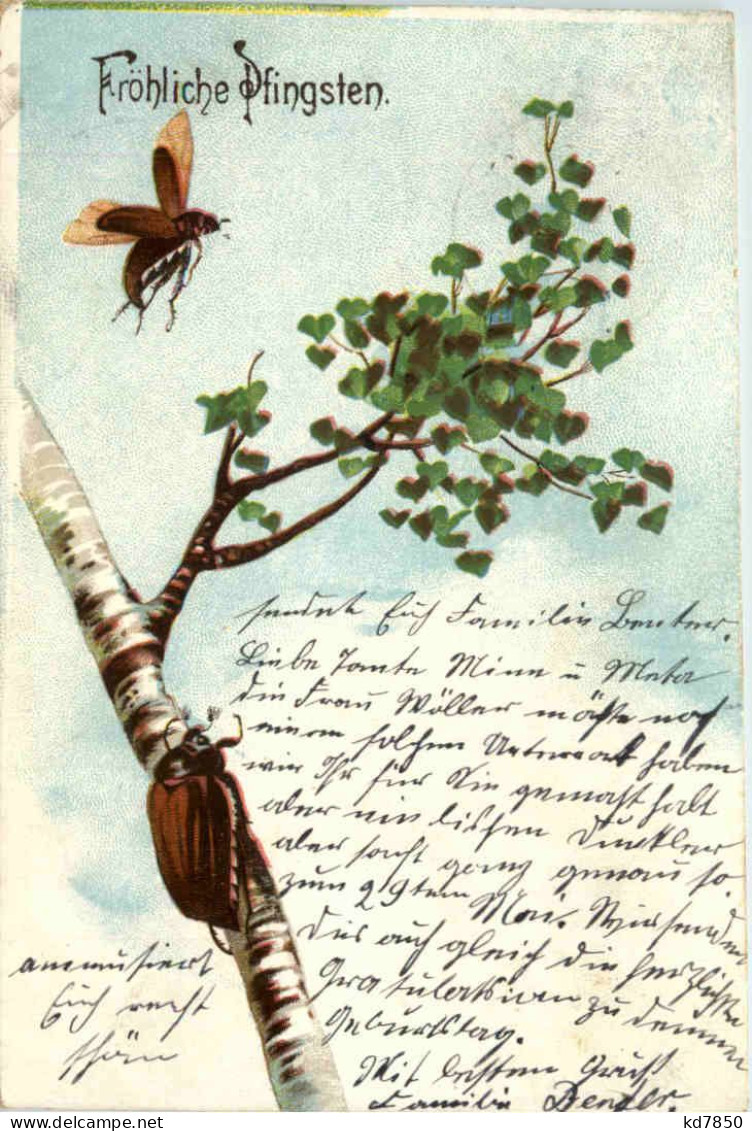 Fröhliche Pfingsten.
sendet Euch Familie
Liebe Tante Mine u Meta
die Frau Wöller möchte noch
einen solchen haben
wie Ihr für Sie gemacht habt
aber ein bischen dunkler
aber sonst ganz genau so.
zum 29tem Mai. Wir senden
Dir auch gleich die herzlichsten
Gratulatsion zu deinem
Geburtstag.
Mit besten Gruß
Familie
ammüsiert
Euch recht
schön
kd7850